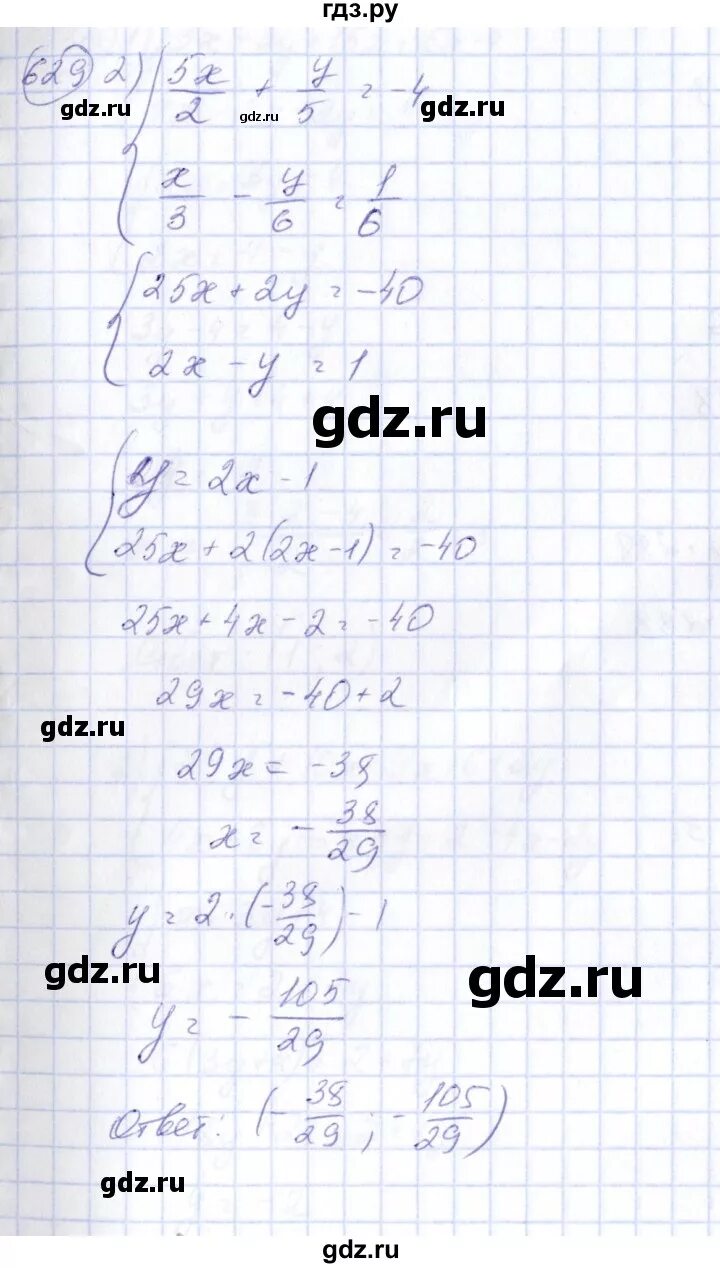 гдз.ру
629 2) { 5x/2 + y/5 = -4
gdz.ru gdz.ru gdz.ru
x/3 - y/6 = 1/6
{ 25x + 2y = -40
2x - y = 1
gdz.ru
{ y = 2x - 1
25x + 2(2x - 1) = -40
25x + 4x - 2 = -40
29x = -40 + 2
gdz.ru
29x = -38
x = - 38/29
y = 2 · (- 38/29) - 1
gdz.ru gdz.ru
y = - 105/29
Ответ: (- 38/29 ; - 105/29)
gdz.ru
gdz.ru